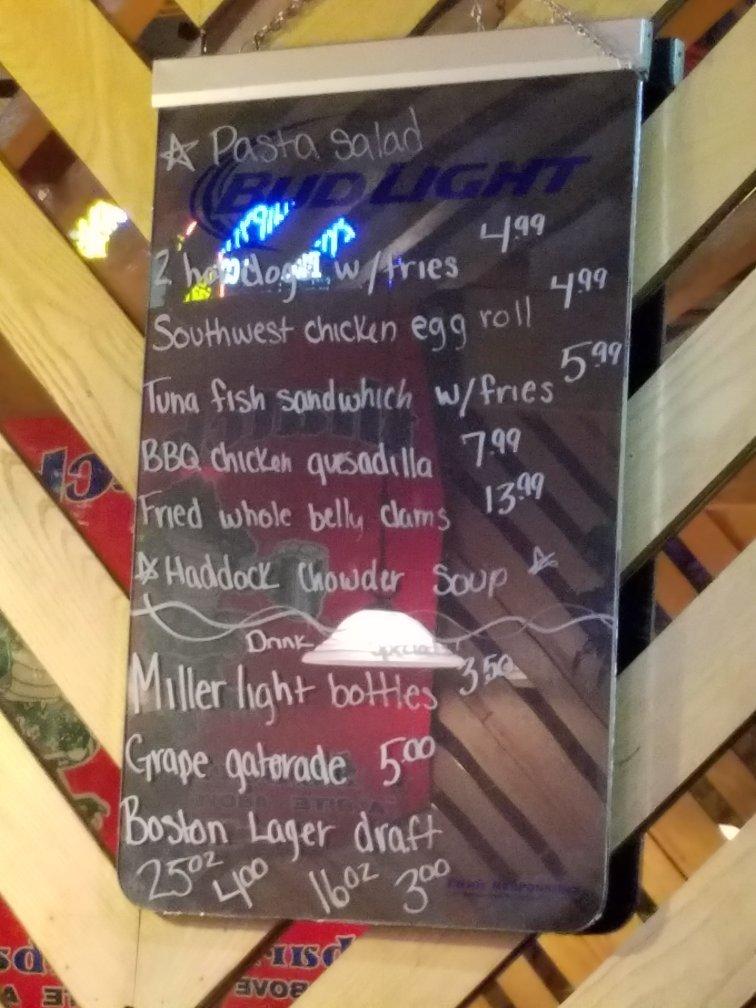 ☆ Pasta Salad
BUD LIGHT
2 hot dogs w/fries 4.99
Southwest chicken egg roll 4.99
Tuna fish sandwhich w/fries 5.99
BBQ chicken qusadilla 7.99
Fried whole belly clams 13.99
☆ Haddock Chowder Soup ☆
Drink Specials
Miller light bottles 3.50
Grape gatorade 5.00
Boston Lager draft
25oz 4.00 16oz 3.00